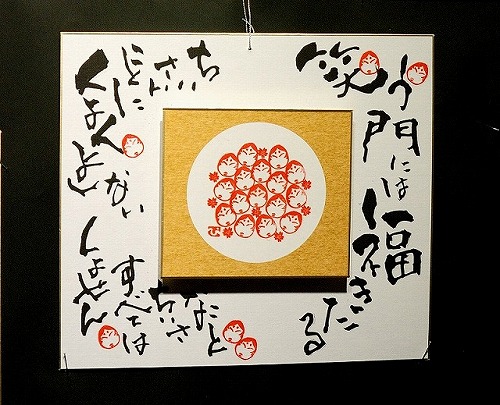 笑う門には
福きたる
ちいさい
ことに
くよくよ
しない
しょせん
すべては
ちいさ
なこと